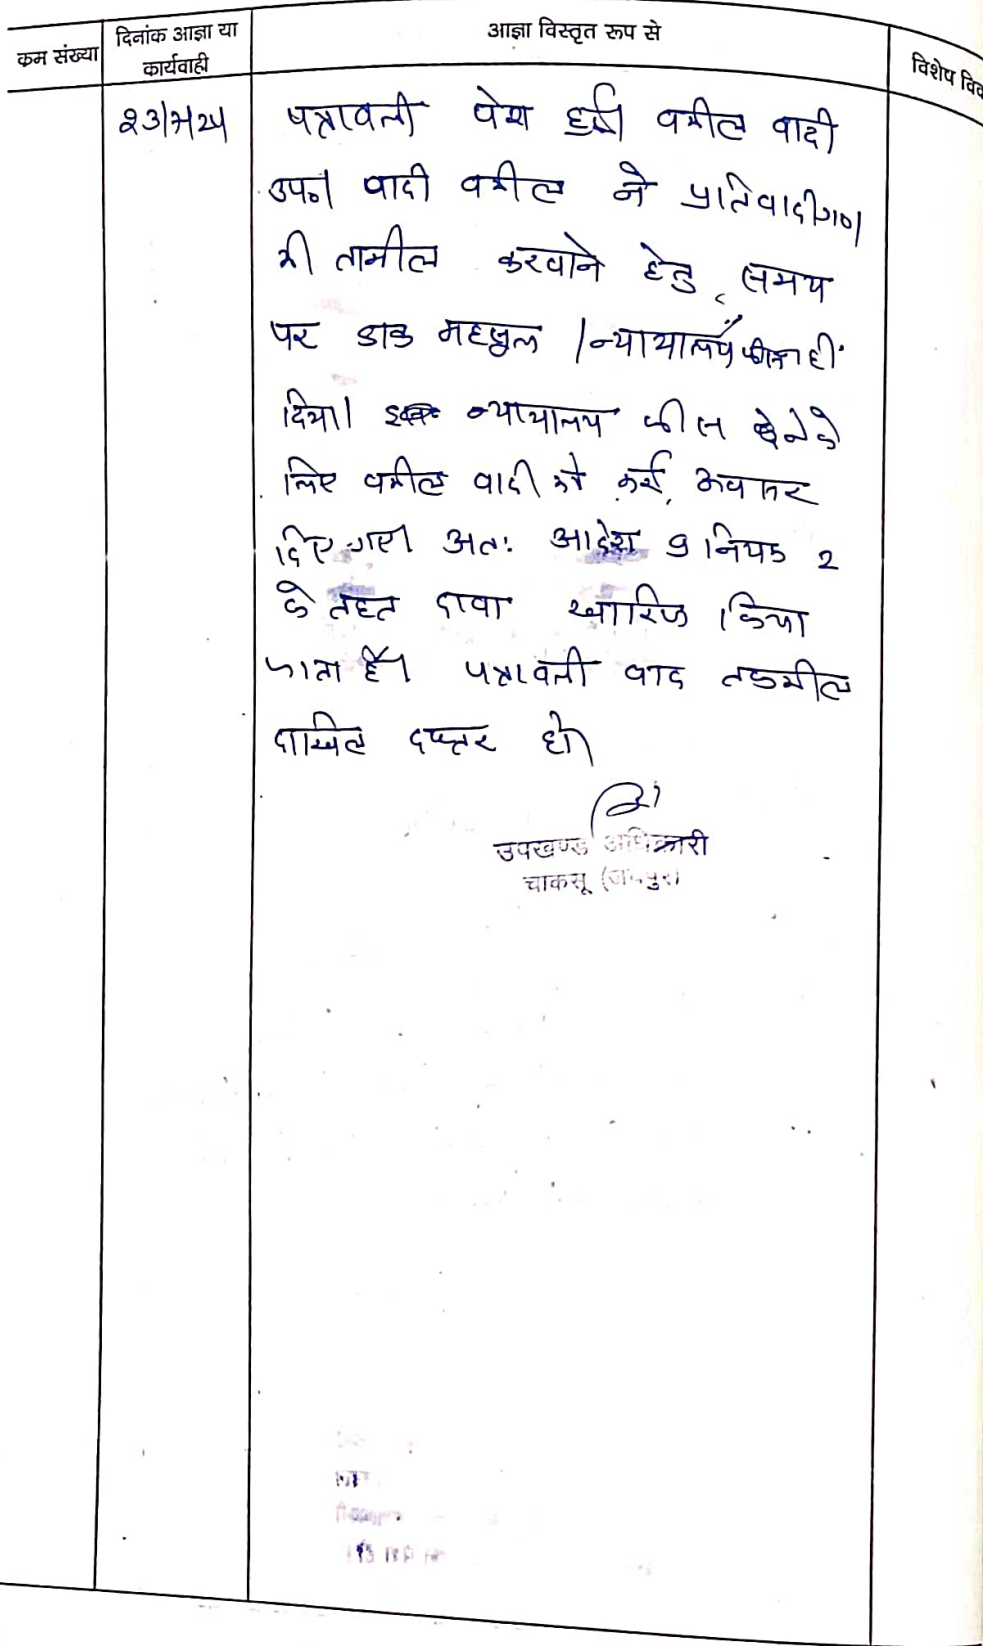 कम संख्या
दिनांक आज्ञा या
कार्यवाही
आज्ञा विस्तृत रूप से
विशेष विव
23/7/25
पत्रावली पेश हुई। वकील वादी
उप0। वादी वकील ने प्रतिवादीगण
की तामील करवाने हेतु समय
पर डाक महसूल / न्यायालय फीस नहीं
दिया। न्यायालय फीस देने के
लिए वकील वादी को कई अवसर
दिए गए। अतः आदेश 9 नियम 2
के तहत दावा खारिज किया
जाता है। पत्रावली बाद तकमील
दाखिल दफ्तर हो।
उपखण्ड अधिकारी
चाकसू (जयपुर)